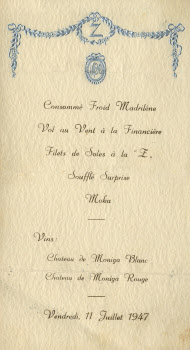 Z
Consommé Froid Madrilène
Vol au Vent à la Financière
Filets de Soles à la "Z"
Soufflé Surprise
Moka
Vins:
Chateau de Moniga Blanc
Chateau de Moniga Rouge
Vendredi, 11 Juillet 1947